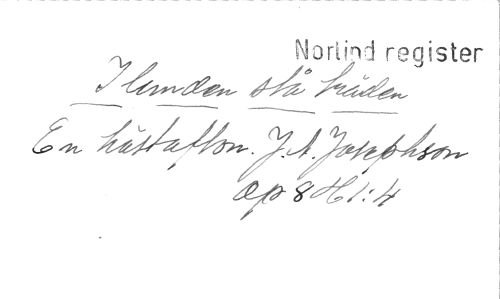 Norlind register
I lunden stå träden
En höstafton. J. A. Josephson
op 8 H 1:4